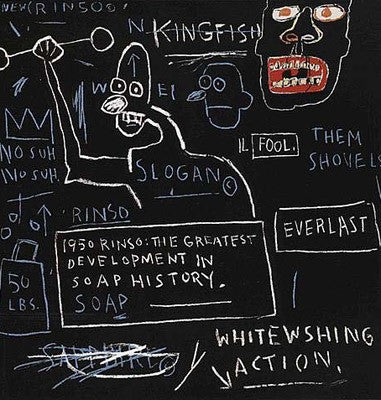 NEW (RINSO©
N
KINGFISH
W EI
IL FOOL.
THEM
SHOVELS
NO SUH
NO SUH
SLOGAN©
RINSO
EVERLAST
1950 RINSO: THE GREATEST
DEVELOPMENT IN
SOAP HISTORY.
SOAP
50
LBS.
WHITEWSHING
ACTION.